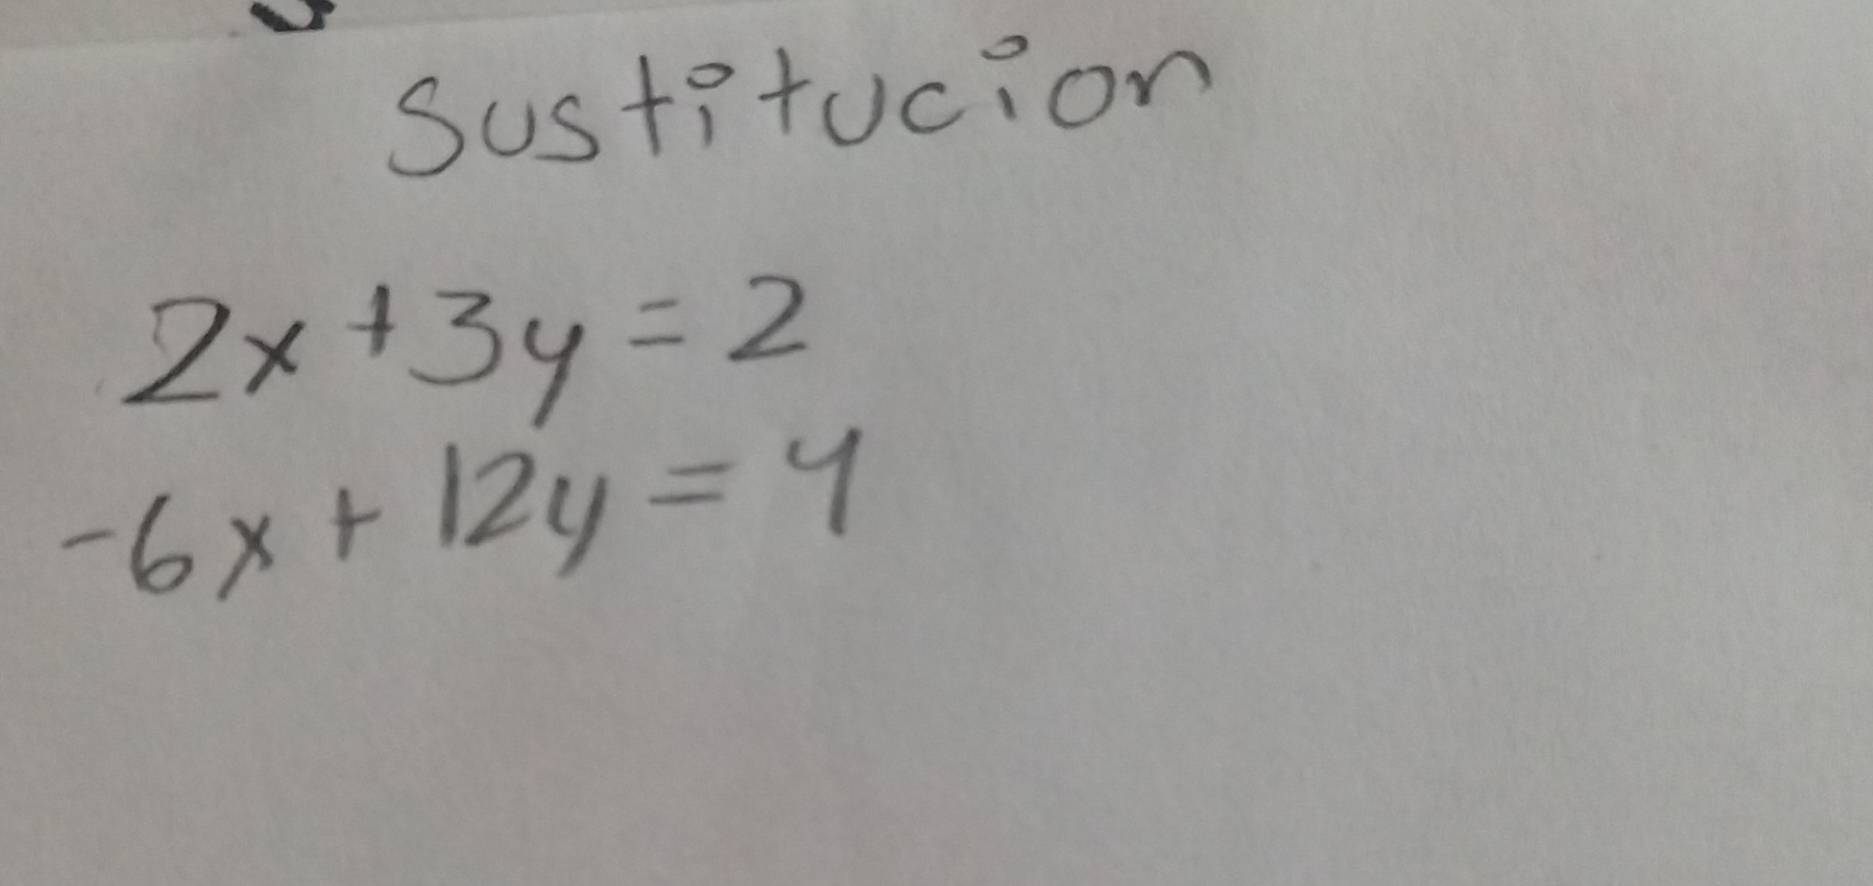 Sustitucion
2x + 3y = 2
-6x + 12y = 4